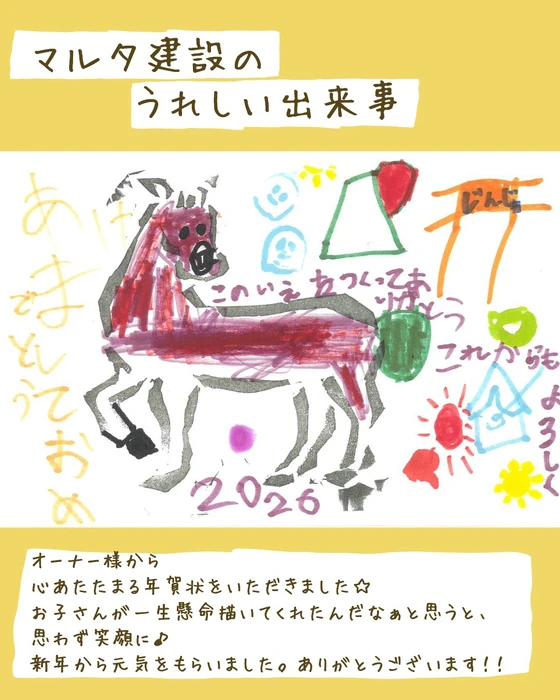 マルタ建設の
うれしい出来事
じんじゃ
このいえをつくってあ
りがとう
これからも
よろしく
2026
オーナー様から
心あたたまる年賀状をいただきました☆
お子さんが一生懸命描いてくれたんだなぁと思うと、
思わず笑顔に♪
新年から元気をもらいました。ありがとうございます!!